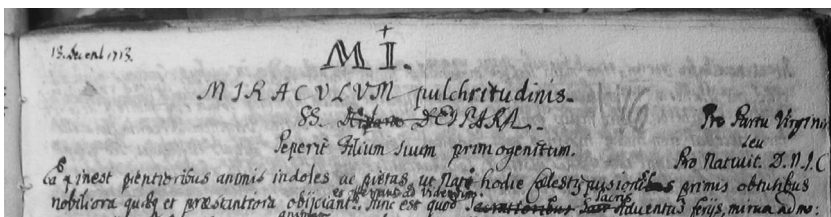 13. Decemb. 1713.
M I.
MIRACVLVM pulchritudinis.
SS. DEIPARA.
Peperit Filium suum primogenitum.
Pro Partu Virginis
seu
Pro Nativit. D.N.I.C
inest pientioribus animis indoles ac pietas, ut hodie primis obtutibus
et servanda
nobiliora quæq et præstantiora obijciant. Hinc est quod sacris Adventus ferijs, mirum